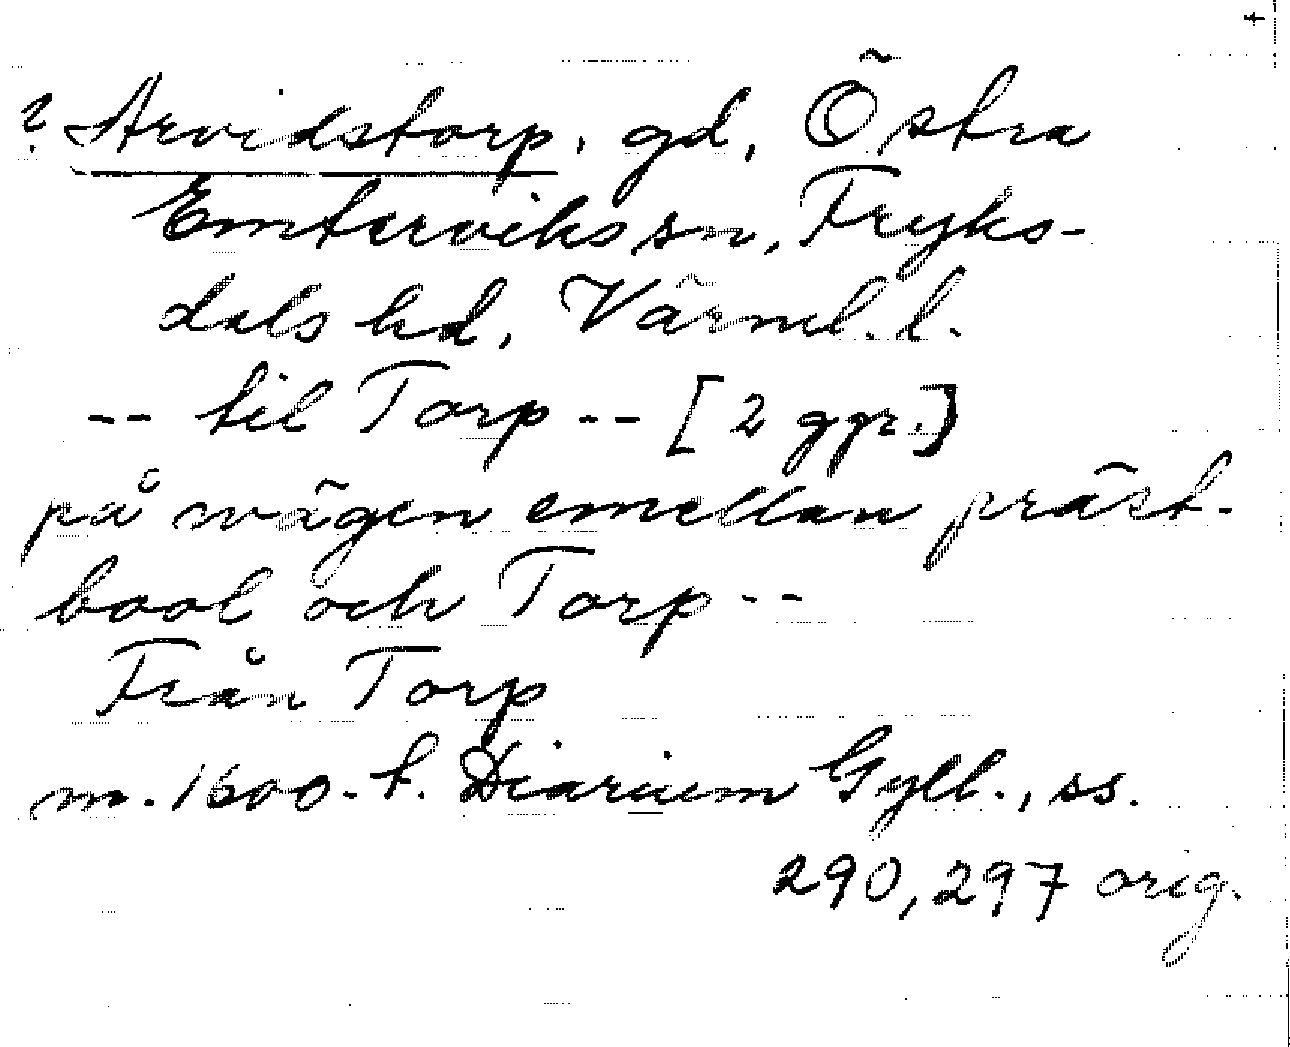 ? Arvidstorp, gd, Östra
Emterviks sn, Fryks-
dals hd, Värml. l.
-- til Torp -- [2 ggr.]
på wägen emellan präst-
bool och Torp --
Från Torp
m. 1600-t. Diarium Gyll., ss.
290, 297 orig.